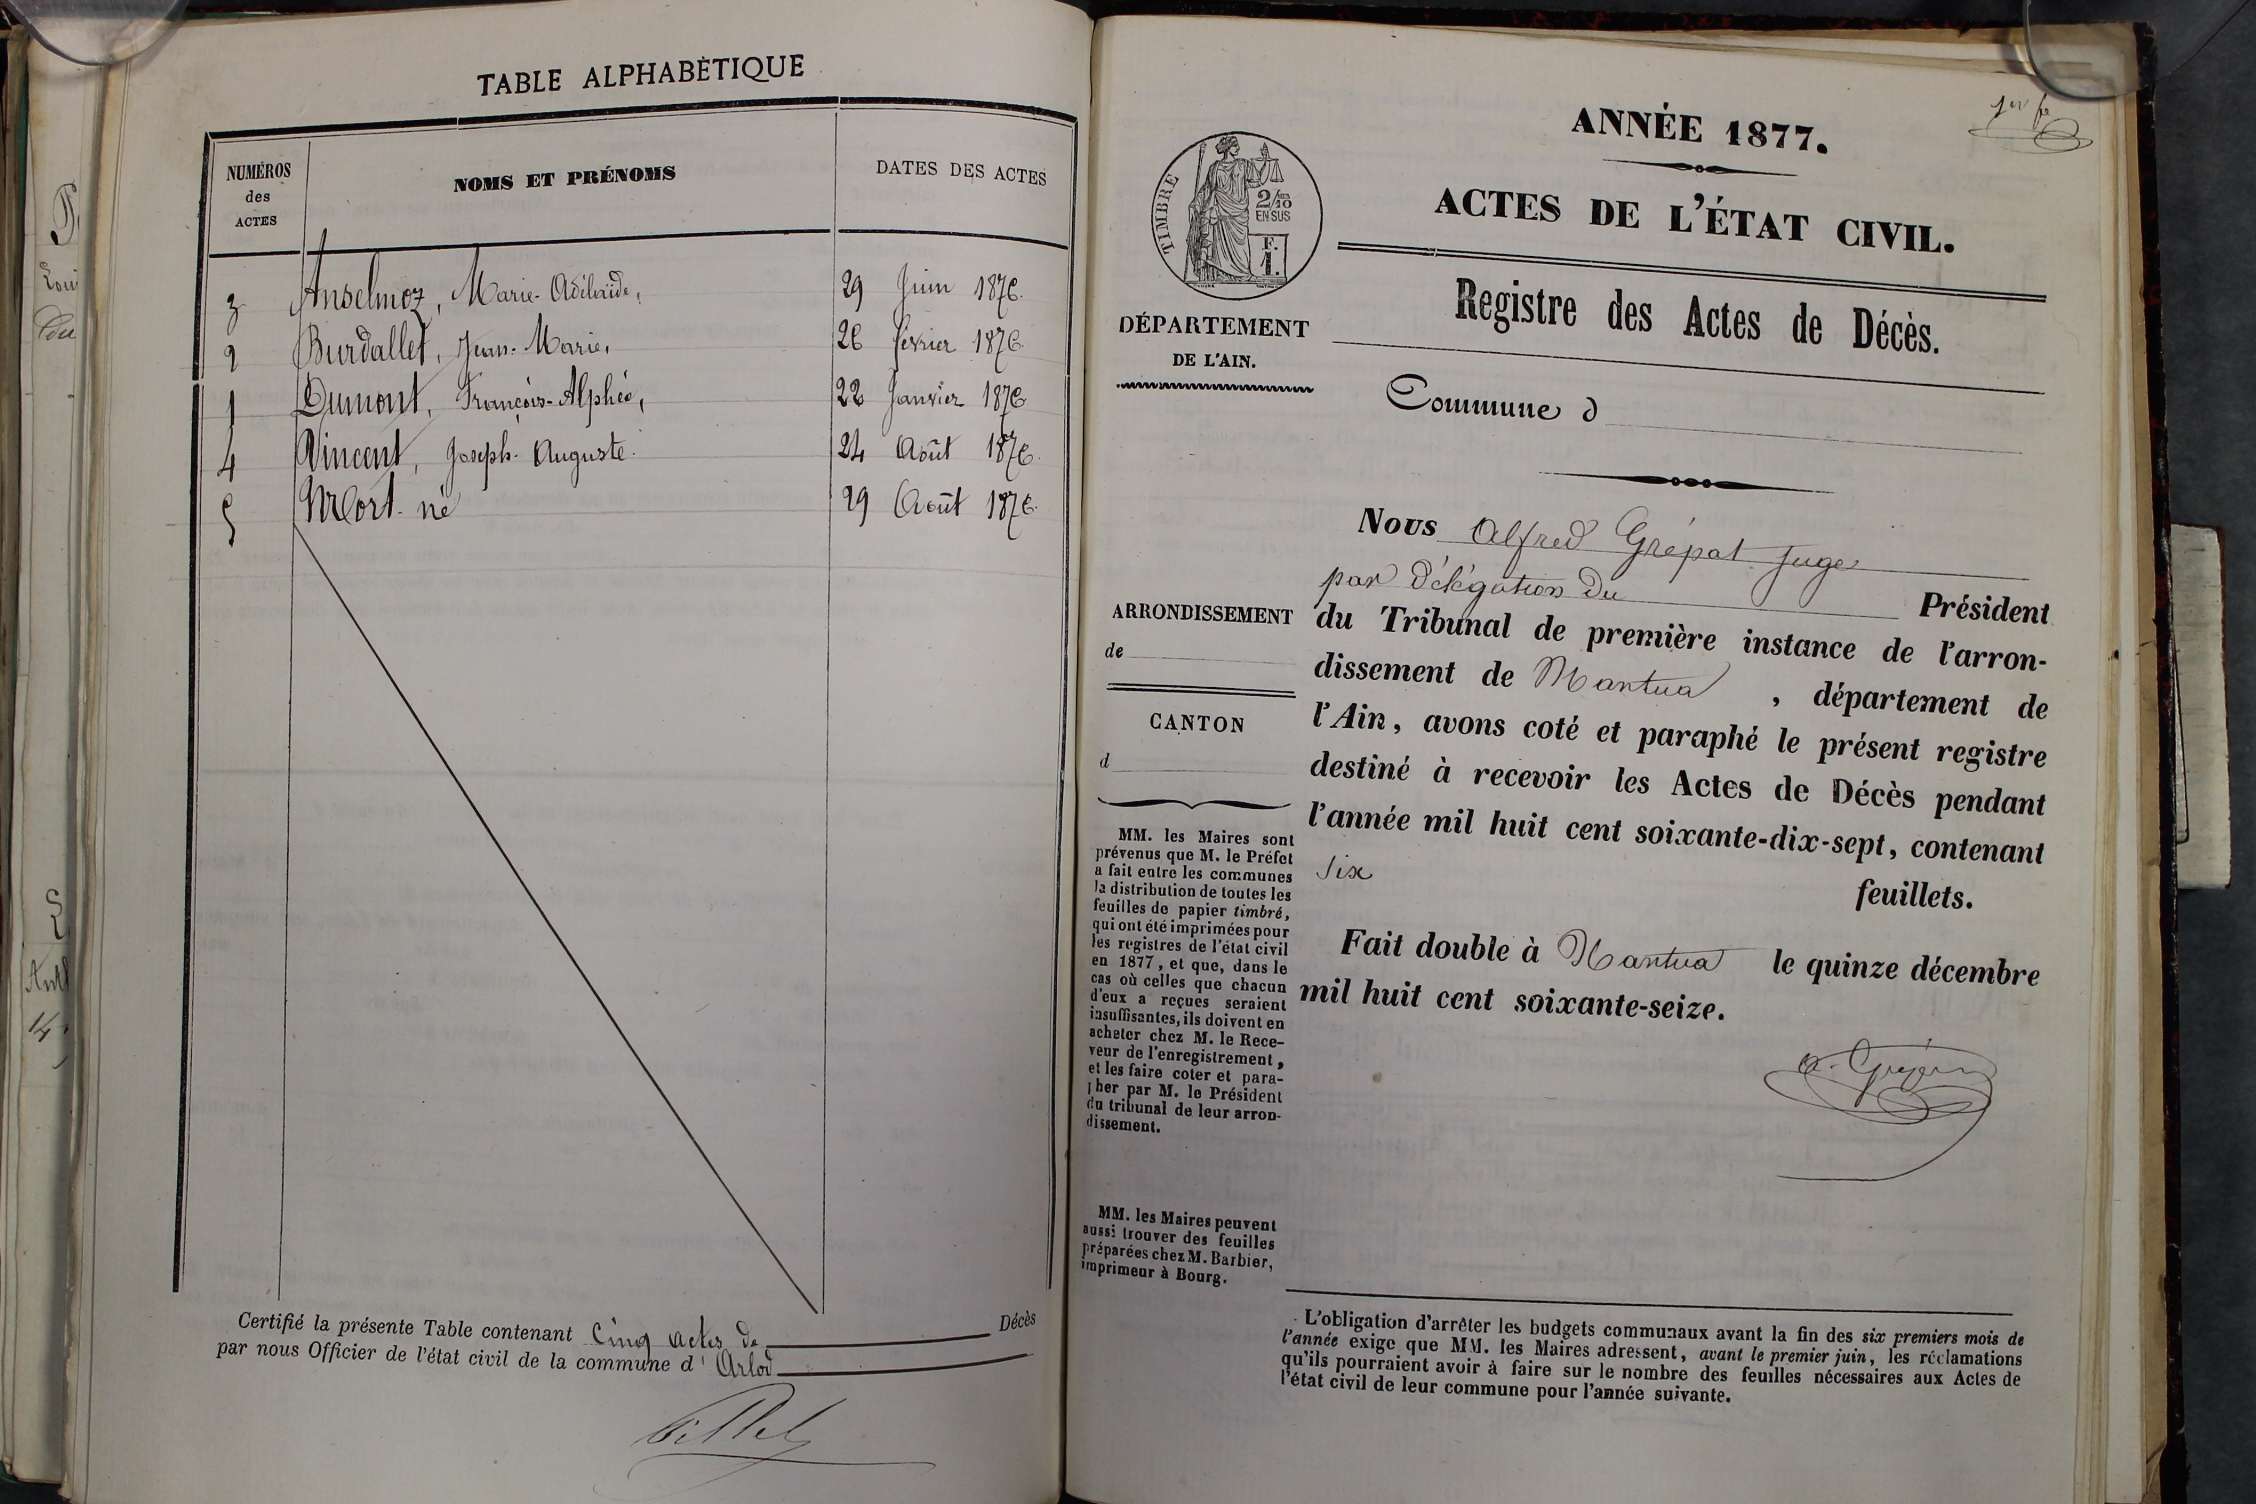 TABLE ALPHABÉTIQUE
NUMÉROS des ACTES
NOMS ET PRÉNOMS
DATES DES ACTES
3 Anselmoz, Marie-Adélaïde, 29 Juin 1876.
2 Burdallet, Jean-Marie, 26 février 1876.
1 Dumont, François-Alphée, 22 Janvier 1876
4 Vincent, Joseph-Auguste. 24 Août 1876.
5 Mort-né 29 Août 1876.
Certifié la présente Table contenant Cinq actes de Décès
par nous Officier de l'état civil de la commune d' Arlod
1er fo
ANNÉE 1877.
ACTES DE L'ÉTAT CIVIL.
TIMBRE
2/10
EN SUS
F.
1.
DÉPARTEMENT
DE L'AIN.
Registre des Actes de Décès.
Commune d
Nous Alfred Grépat Juge
par délégation du Président
du Tribunal de première instance de l'arron-
dissement de Nantua, département de
l'Ain, avons coté et paraphé le présent registre
destiné à recevoir les Actes de Décès pendant
l'année mil huit cent soixante-dix-sept, contenant
Six
feuillets.
Fait double à Nantua le quinze décembre
mil huit cent soixante-seize.
ARRONDISSEMENT
de
CANTON
d
MM. les Maires sont
prévenus que M. le Préfet
a fait entre les communes
la distribution de toutes les
feuilles de papier timbré,
qui ont été imprimées pour
les registres de l'état civil
en 1877, et que, dans le
cas où celles que chacun
d'eux a reçues seraient
insuffisantes, ils doivent en
acheter chez M. le Rece-
veur de l'enregistrement,
et les faire coter et para-
pher par M. le Président
du tribunal de leur arron-
dissement.
MM. les Maires peuvent
aussi trouver des feuilles
préparées chez M. Barbier,
imprimeur à Bourg.
L'obligation d'arrêter les budgets communaux avant la fin des six premiers mois de
l'année exige que MM. les Maires adressent, avant le premier juin, les réclamations
qu'ils pourraient avoir à faire sur le nombre des feuilles nécessaires aux Actes de
l'état civil de leur commune pour l'année suivante.